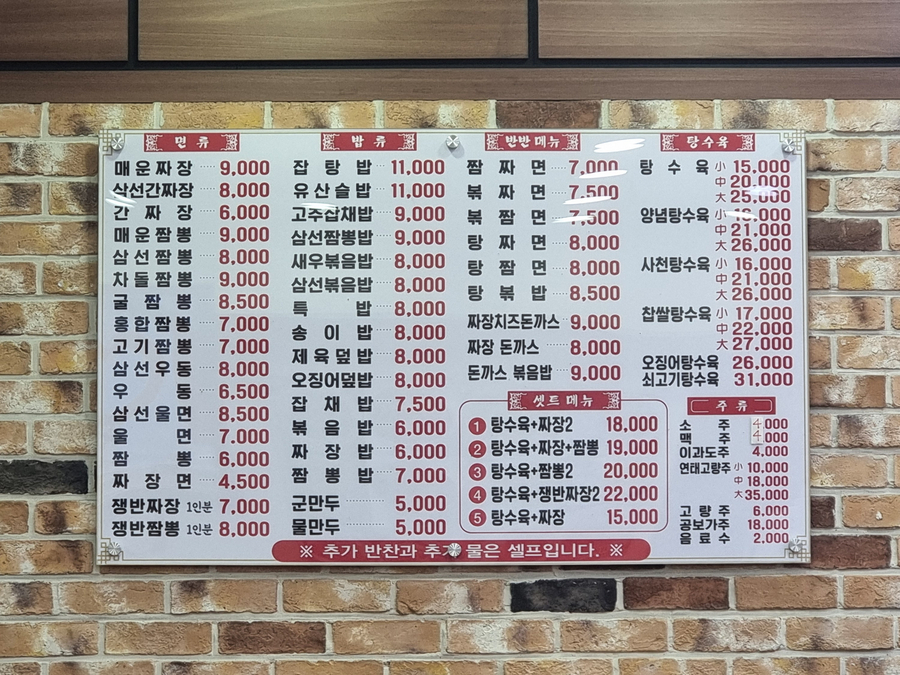 면 류
매운짜장 9,000
삭선간짜장 8,000
간 짜 장 6,000
매운짬뽕 9,000
삼선짬뽕 8,000
차돌짬뽕 9,000
굴 짬 뽕 8,500
홍합짬뽕 7,000
고기짬뽕 7,000
삼선우동 8,000
우 동 6,500
삼선울면 8,500
울 면 7,000
짬 뽕 6,000
짜 장 면 4,500
쟁반짜장 1인분 7,000
쟁반짬뽕 1인분 8,000
밥 류
잡 탕 밥 11,000
유산슬밥 11,000
고추잡채밥 9,000
삼선짬뽕밥 9,000
새우볶음밥 8,000
삼선볶음밥 8,000
특 밥 8,000
송 이 밥 8,000
제육덮밥 8,000
오징어덮밥 8,000
잡 채 밥 7,500
볶 음 밥 6,000
짜 장 밥 6,000
짬 뽕 밥 7,000
군만두 5,000
물만두 5,000
반반메뉴
짬 짜 면 7,000
볶 짜 면 7,500
볶 짬 면 7,500
탕 짜 면 8,000
탕 짬 면 8,000
탕 볶 밥 8,500
짜장치즈돈까스 9,000
짜장 돈까스 8,000
돈까스 볶음밥 9,000
셋트메뉴
1 탕수육+짜장2 18,000
2 탕수육+짜장+짬뽕 19,000
3 탕수육+짬뽕2 20,000
4 탕수육+쟁반짜장2 22,000
5 탕수육+짜장 15,000
탕수육
탕 수 육 小 15,000
中 20,000
大 25,000
양념탕수육 小
中 21,000
大 26,000
사천탕수육 小 16,000
中 21,000
大 26,000
찹쌀탕수육 小 17,000
中 22,000
大 27,000
오징어탕수육 26,000
쇠고기탕수육 31,000
주 류
소 주 4,000
맥 주 4,000
이과도주 4,000
연태고량주 小 10,000
中 18,000
大 35,000
고 량 주 6,000
공보가주 18,000
음 료 수 2,000
※ 추가 반찬과 추가 물은 셀프입니다. ※